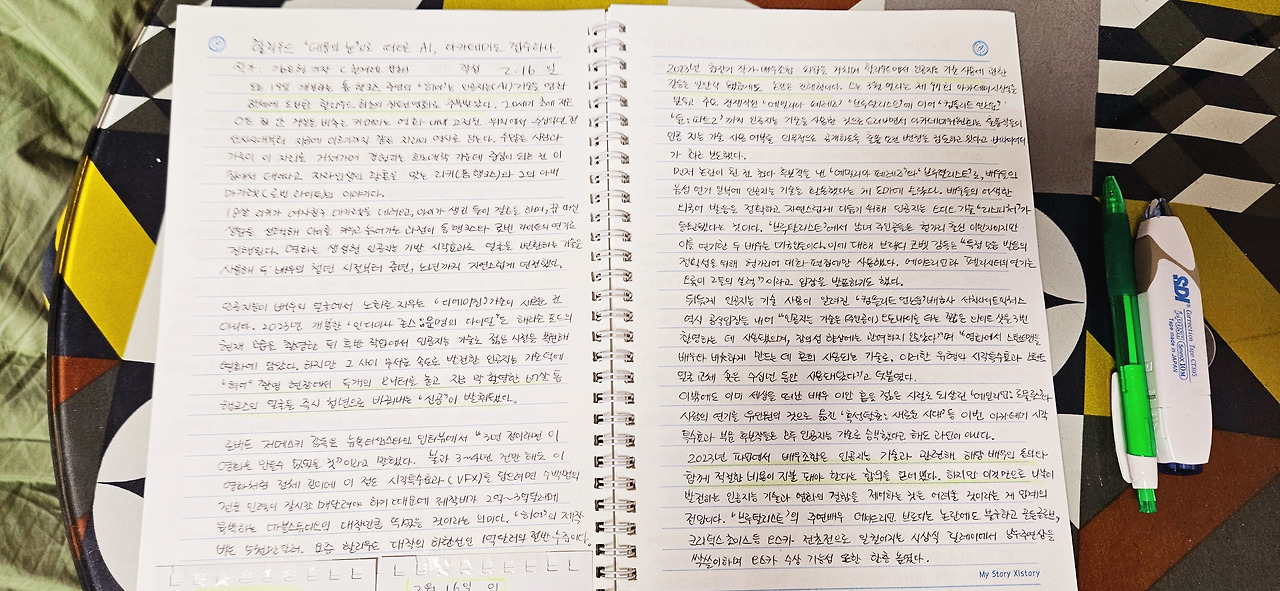 할리우드 '대통의 눈'으로 떠오른 AI, 아카데미도 접수하나.
2.16 일
오는 19일 개봉하는 톰 행크스 주연의 "히어"는 인공지능(AI) 기술을 영화
전체에 도입한 할리우드 최초의 장편영화로 주목받았다.
가족이 이 자리를 거쳐가며 경험하는 희노애락 가운데 중심이 되는 건 이
집에서 태어나고 자라 리키(톰 행크스)와 그의 아내
마가렛(로빈 라이트)의 이야기다.
18살 리키가 여자친구 마가렛을 데려오고, 아이가 생긴 둘이 결혼을 하며, 꿈 대신
생활을 선택해 아이를 키우고 늙어가는 과정이 톰 행크스와 로빈 라이트의 연기로
진행된다. 영화는 생성형 인공지능 기반 시각효과로 얼굴을 변환하는 기술을
사용해 두 배우의 청년 시절부터 중년, 노년까지 자연스럽게 연결했다.
인공지능이 배우의 얼굴에서 노화를 지우는 "디에이징" 기술이 새로운 건
아니다. 2023년 개봉한 '인디아나 존스:운명의 다이얼'은 해리슨 포드의
현재 모습을 촬영한 뒤 후반 작업에서 인공지능 기술로 젊은 시절을 복원해
영화에 담았다. 하지만 그 사이 무서운 속도로 발전한 인공지능 기술 덕에
"히어" 촬영 현장에서 두개의 모니터를 놓고 직접 촬영한 67살 톰
행크스의 얼굴을 즉시 청년으로 바꿔내는 "신공"이 발휘됐다.
로버트 저메키스 감독은 뉴욕타임스와의 인터뷰에서 "3년 전이라면 이
영화를 만들수 없었을 것"이라고 말했다. 불과 3~4년 전만 해도 이
영화처럼 전체 분량에 이 정도 시각효과(VFX)를 담으려면 수백명의
전문 인력이 장시간 매달려야 하기 때문에 제작비가 2억~3억달러에
육박하는 마블스튜디오의 대작만큼 뛰었을 것이라는 의미다. "히어"의 제작
비는 5천만달러. 요즘 할리우드 대작의 하한선인 1억달러의 절반 수준이다.
2월 16일 일
2023년 할리우드 작가·배우조합 파업을 거치며 할리우드에서 인공지능 기술 사용에 관한
길들은 일단락 됐음에도 논란은 여전하다. 오는 3월 열리는 제 97회 아카데미시상식을
앞두고 주요 경쟁작인 "에밀리아 페레즈" "브루탈리스트"에 이어 "컴플리트 언노운"
"듄:파트2"까지 인공지능 기술을 사용한 것으로 드러나면서 아카데미위원회는 출품작들의
인공 지능 기술 사용 여부를 의무적으로 공개하도록 출품 요건 변경을 검토하고 있다고 버라이어티
가 최근 보도했다.
먼저 논란이 된 건 최다 후보작을 낸 "에밀리아 페레즈"와 "브루탈리스트"로, 배우들의
음성 연기 일부에 인공지능 기술을 활용했다는 게 도마에 올랐다. 배우들의 어색한
외국어 발음을 정확하고 자연스럽게 다듬기 위해 인공지능 오디오 기술 "리스피처"가
동원됐다는 것이다. "브루탈리스트"에서 부부 주인공들은 헝가리 출신 이민자이지만
이를 연기한 두 배우는 미국인이다. 이에 대해 브래디 코베 감독은 "특정 모음 발음의
정확성을 위해 헝가리어 대화 편집에만 사용했다. 에이드리언과 펠리시티의 연기는
오롯이 그들의 것"이라고 입장을 발표하기도 했다.
뒤늦게 인공지능 기술 사용이 알려진 "컴플리트 언노운" 배급사 서치라이트픽처스
역시 공식입장을 내어 "인공지능 기술은 (주인공이) 오토바이를 타는 짧은 와이드 샷을 3번
촬영하는 데 사용됐으며, 창의성 향상에는 관여하지 않았다"며 "영화에서 스턴트맨을
배우와 비슷하게 만드는 데 흔히 사용되는 기술로, 이러한 유형의 시각특수효과는
얼굴 교체 혹은 수십년 동안 사용돼왔다"고 덧붙였다.
이밖에도 이미 세상을 떠난 배우 이안 홈을 젊은 시절로 되살린 "에이리언:로물루스"
사람의 연기를 유인원의 것으로 옮긴 "혹성탈출:새로운 시대" 등 이번 아카데미 시각
특수효과 부문 후보작들은 모두 인공지능 기술로 승부했다고 해도 과언이 아니다.
2023년 파업에서 배우조합은 인공지능 기술과 관련해 해당 배우의 동의와
함께 적절한 비용이 지불 돼야 한다는 합의를 끌어냈다. 하지만 이것만으로 나날이
발전하는 인공지능 기술과 영화의 결합을 제어하는 것은 어려울 것이라는 게 업계의
전망이다. "브루탈리스트"의 주연배우 에이드리언 브로디는 논란에도 불구하고 골든글로브,
크리틱스초이스 등 오스카 전초전으로 일컬어지는 시상식 릴레이에서 남우주연상을
싹쓸이하며 오스카 수상 가능성 또한 한층 높였다.
My Story Xistory
SDI
Correction Tape CT205
Tape made in JAPAN